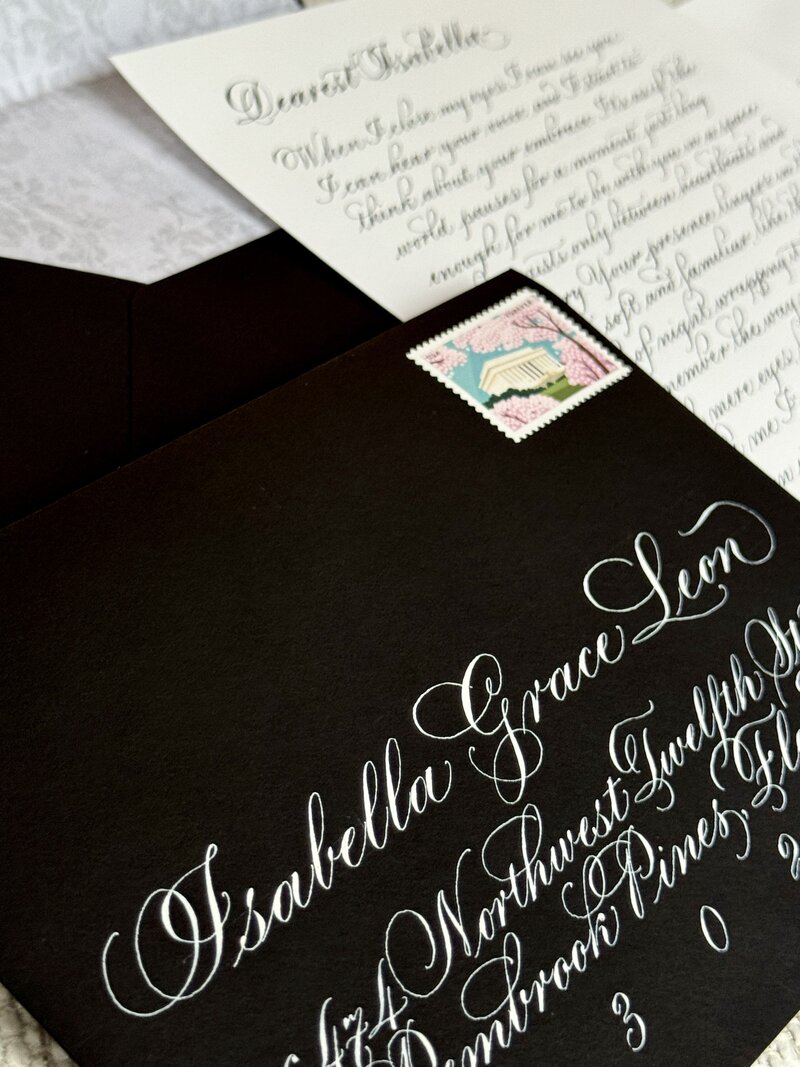 Dearest Isabella
When I close my eyes I can see you
I can hear your voice and I start to
think about your embrace. It's as if the
world pauses for a moment, just long
enough for me to be with you in a space
exists only between heartbeats and
Your presence lingers
soft and familiar like the
of night wrapping it
remember the way
mere eyes,
me I
Isabella Grace Leon
Northwest Twelfth
Pembrook Pines, Flo
3 0